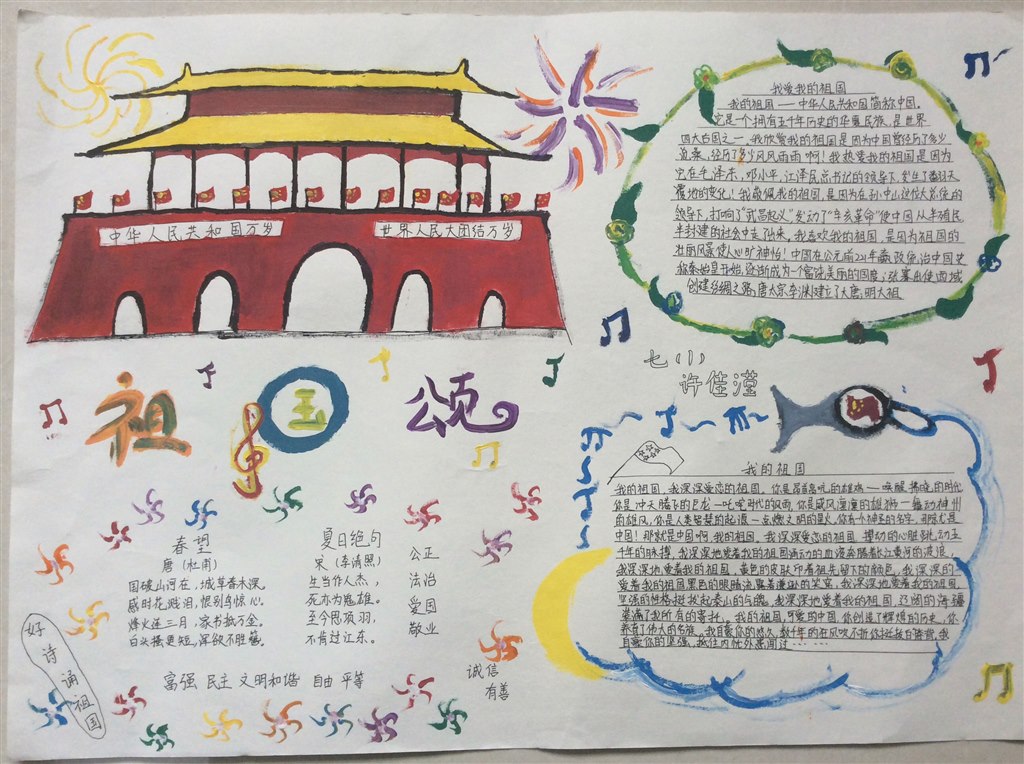 中华人民共和国万岁
世界人民大团结万岁
祖国颂
春望
唐(杜甫)
国破山河在，城草春木深。
感时花溅泪，恨别鸟惊心。
烽火连三月，家书抵万金。
白头搔更短，浑欲不胜簪。
夏日绝句
宋(李清照)
生当作人杰，
死亦为鬼雄。
至今思项羽，
不肯过江东。
公正
法治
爱国
敬业
诚信
有善
富强 民主 文明和谐 自由 平等
好诗诵祖国
我爱我的祖国
我的祖国——中华人民共和国简称中国。
它是一个拥有五千年历史的华夏民族，是世界
四大古国之一，我欣赏我的祖国是因为中国曾经历了多少
沧桑，经历了多少风风雨雨啊！我热爱我的祖国是因为
它在毛泽东，邓小平，江泽民总书记的领导下，发生了翻天
覆地的变化！我敬佩我的祖国，是因为在孙中山这位大总统的
领导下，打响了“武昌起义”发动了“辛亥革命”使中国从半殖民
半封建的社会中走出来。我喜欢我的祖国，是因为祖国的
壮丽风景使人心旷神怡！中国在公元前221年嬴政统治中国史
称秦始皇开始，逐渐成为一个富饶美丽的国度；张骞出使西域
创建丝绸之路，唐太宗李渊建立了大唐，明太祖
七(1)
许佳滢
我的祖国
我的祖国，我深深爱恋的祖国。你是昂首高吭的雄鸡——唤醒拂晓的时代
你是冲天腾飞的巨龙—叱咤时代的风雨，你是威风凛凛的雄狮—舞动神州
的雄风，你是人类智慧的起源—点燃文明的星火。你有个神圣的名字，那就是
中国！那就是中国啊，我的祖国。我深深爱恋的祖国。
我深深地爱着我的祖国，黄色的皮肤印着祖先留下的颜色。我深深的
爱着我的祖国
坚强的性格挺拔起泰山的气魄。我深深地爱着我的祖国，辽阔的海疆
装满了我所有的寄托。我的祖国，可爱的中国，你创造了辉煌的历史，你
养育了伟大的民族。我自豪你的悠久，数千年的狂风吹不折你挺拔的脊背，我
自豪你的坚强，我住内忧外患闯过······